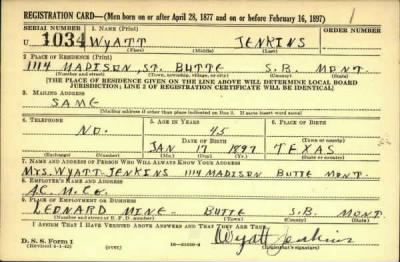 REGISTRATION CARD—(Men born on or after April 28, 1877 and on or before February 16, 1897)
SERIAL NUMBER 1. Name (Print) ORDER NUMBER
U 1034 WYATT JENKINS
(First) (Middle) (Last)
2. PLACE OF RESIDENCE (Print)
1114 MADISON ST. BUTTE S.B. MONT.
(Number and street) (Town, township, village, or city) (County) (State)
[THE PLACE OF RESIDENCE GIVEN ON THE LINE ABOVE WILL DETERMINE LOCAL BOARD
JURISDICTION; LINE 2 OF REGISTRATION CERTIFICATE WILL BE IDENTICAL]
3. MAILING ADDRESS
SAME
[Mailing address if other than place indicated on line 2. If same insert word same]
4. TELEPHONE 5. AGE IN YEARS 6. PLACE OF BIRTH
NO. 45
DATE OF BIRTH (Town or county)
JAN 17 1897 TEXAS
(Exchange) (Number) (Mo.) (Day) (Yr.) (State or country)
7. NAME AND ADDRESS OF PERSON WHO WILL ALWAYS KNOW YOUR ADDRESS
MRS. WYATT JENKINS 1114 MADISON BUTTE MONT.
8. EMPLOYER'S NAME AND ADDRESS
A.C. M. Co.
9. PLACE OF EMPLOYMENT OR BUSINESS
LEONARD MINE BUTTE S.B. MONT
(Number and street or R. F. D. number) (Town) (County) (State)
I AFFIRM THAT I HAVE VERIFIED ABOVE ANSWERS AND THAT THEY ARE TRUE.
D. S. S. Form 1 Wyatt Jenkins
(Revised 4-1-42) (over)